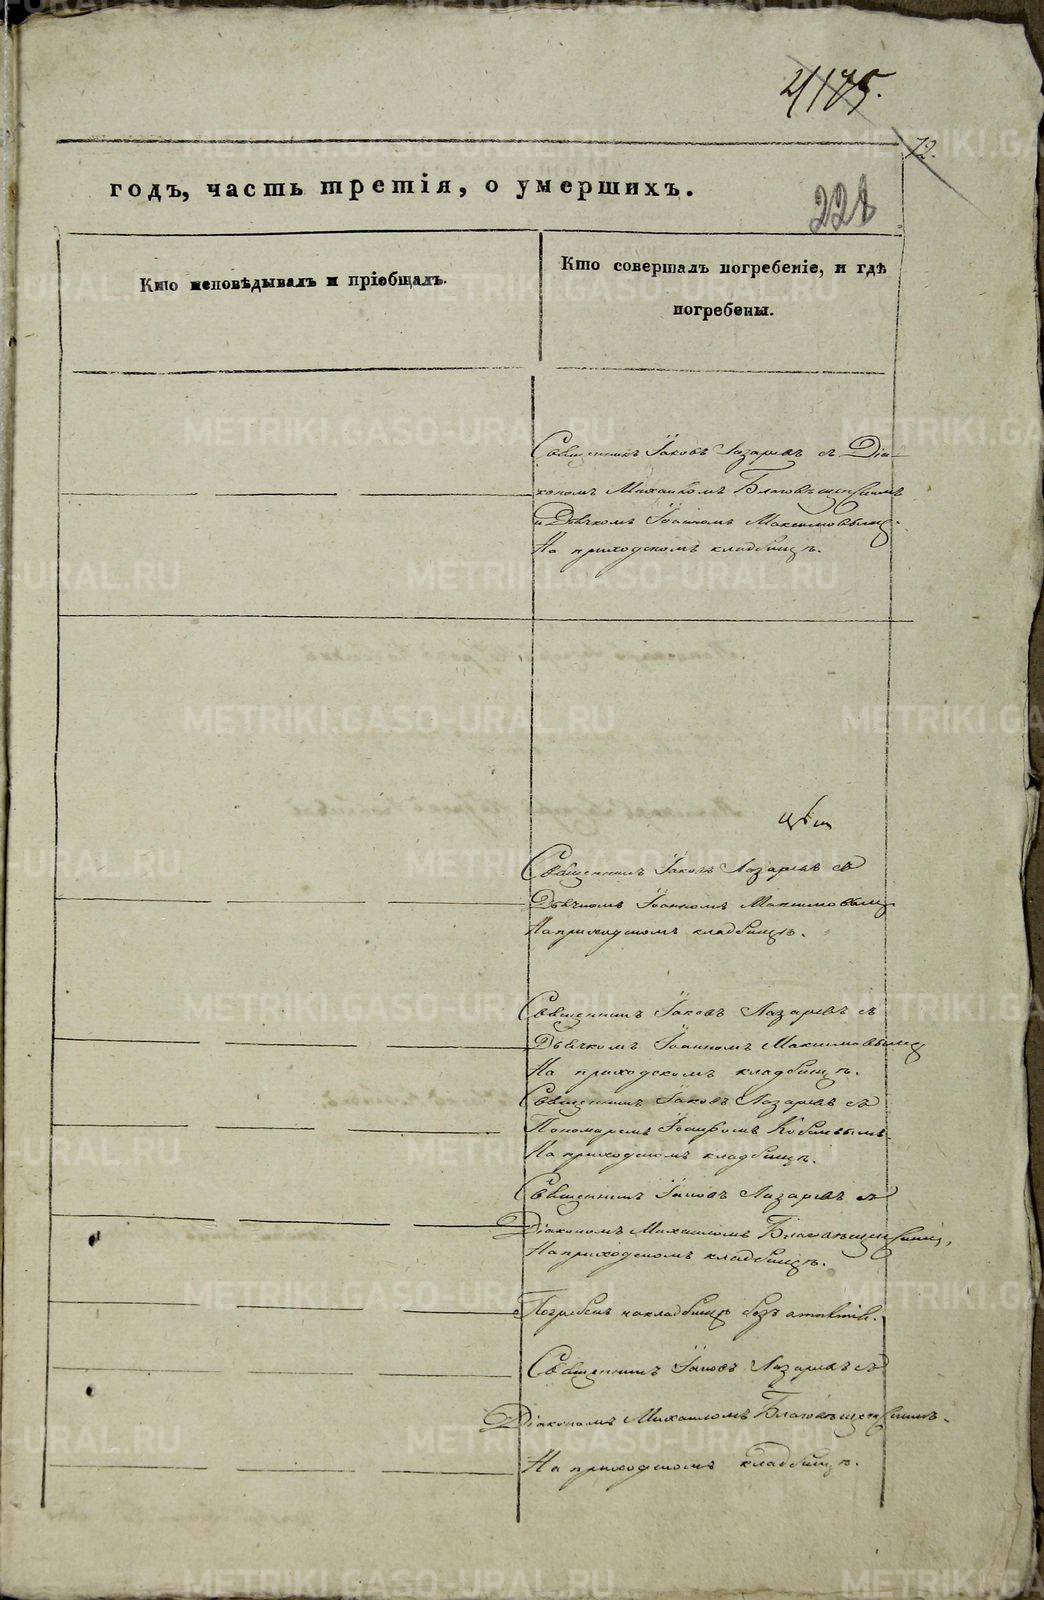 175.
12.
годъ, часть третія, о умершихъ.
228
Кто исповѣдывалъ и пріобщалъ.
Кто совершалъ погребеніе, и гдѣ
погребены.
Священникъ Іаковъ Лазаревъ съ Діа-
кономъ Михаиломъ Благовѣщенскимъ
и Дьячкомъ Іоанномъ Максимовымъ.
На приходскомъ кладбищѣ.
Священникъ Іаковъ Лазаревъ съ
Дьячкомъ Іоанномъ Максимовымъ
На приходскомъ кладбищѣ.
Священникъ Іаковъ Лазаревъ съ
Дьячкомъ Іоанномъ Максимовымъ
На приходскомъ кладбищѣ.
Священникъ Іаковъ Лазаревъ съ
Пономаремъ Іосифомъ
На приходскомъ кладбищѣ.
Священникъ Іаковъ Лазаревъ съ
Діакономъ Михаиломъ Благовѣщенскимъ,
На приходскомъ кладбищѣ.
Погребенъ на кладбищѣ безъ
Священникъ Іаковъ Лазаревъ съ
Діакономъ Михаиломъ Благовѣщенскимъ.
На приходскомъ кладбищѣ.
METRIKI.GASO-URAL.RU